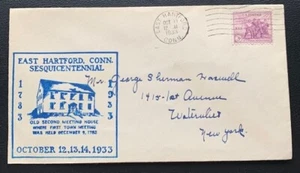 EAST HARTFORD, CONN.
SESQUICENTENNIAL
1783
1933
OLD SECOND MEETING HOUSE
WHERE FIRST TOWN MEETING
WAS HELD DECEMBER 9, 1783
OCTOBER 12,13,14, 1933
EAST HARTFORD
CONN.
1933
Mr George Sherman Maxwell
1915-1st Avenue
Watervliet
New York.